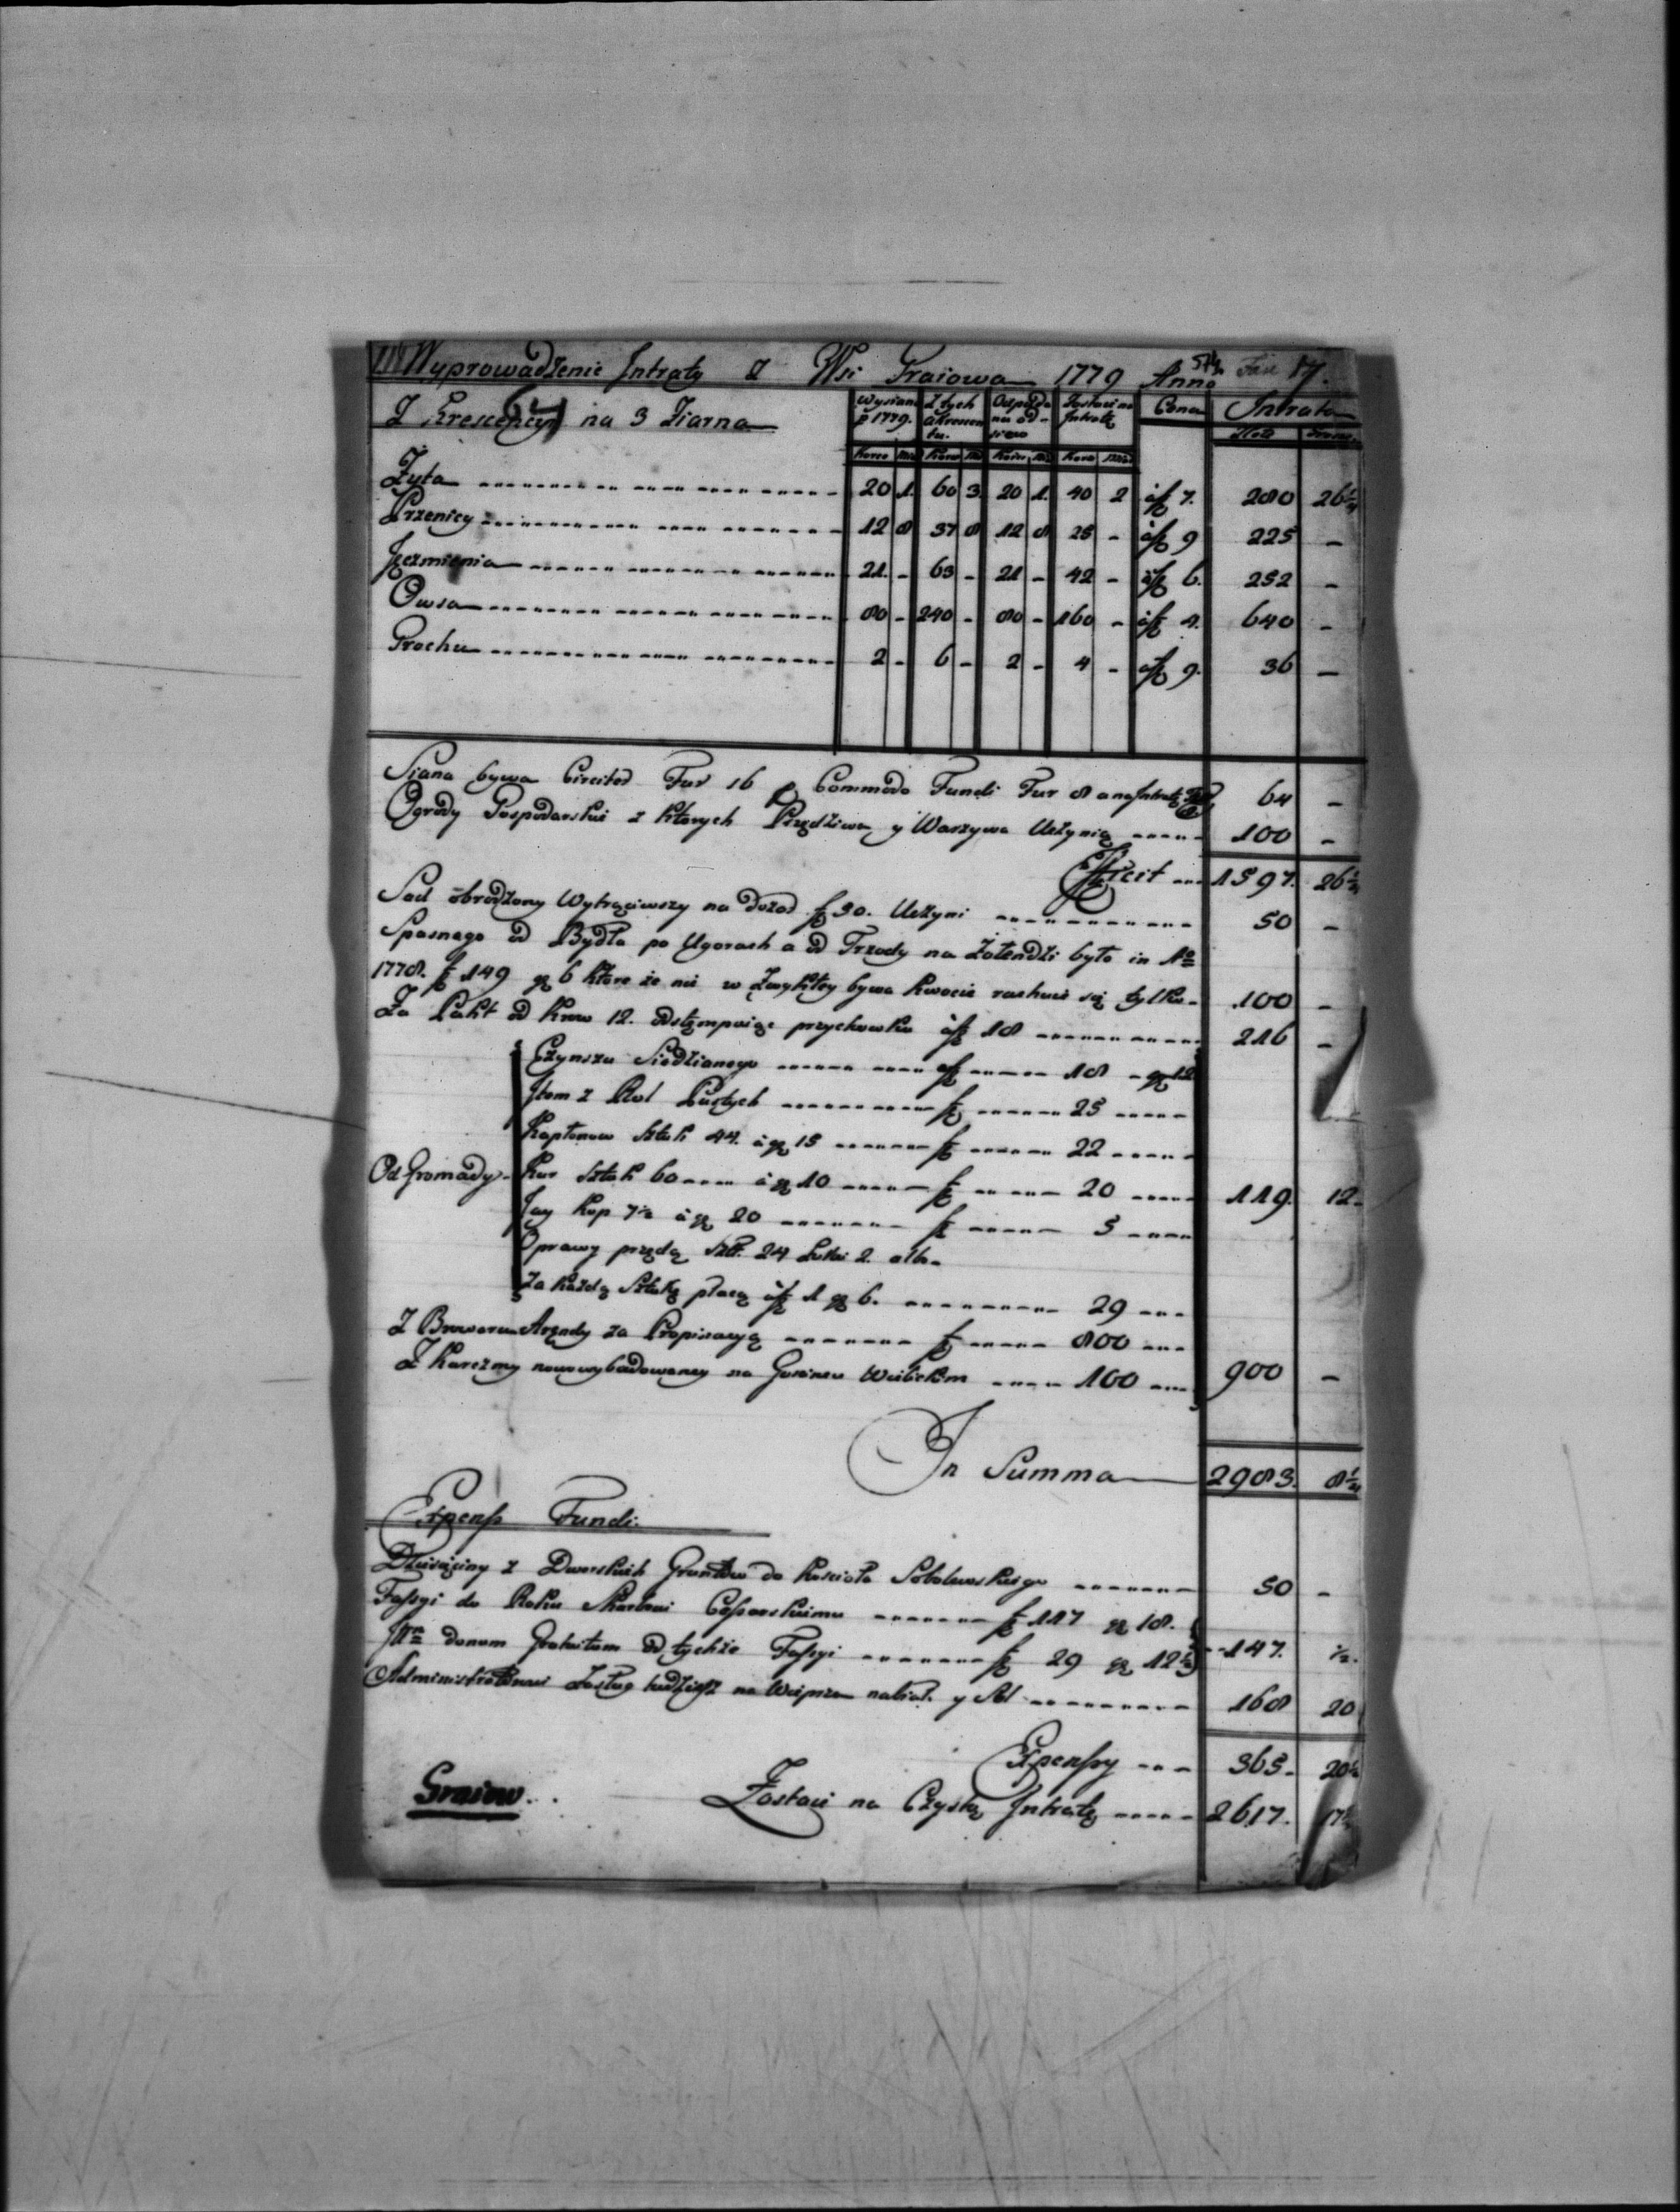 Wyprowadzenie Intraty z Wsi Graiowa 1779 Anno 17.
Z Krescencyi na 3 Ziarna
Wysiano p 1779. Z tych akrescentu. Odpada na od-siew Zostaie na Intratę Cena Intrata
Korce Korce Korce Korce Złote
Żyta 20 1. 60 3. 20 1. 40 2 à f 7. 280 26 1/4
Przenicy 12 8 37 8 12 8 25 - à f 9 225 -
Jęczmienia 21. - 63 - 21 - 42 - à f 6. 252 -
Owsa 80 - 240 - 80 - 160 - à f 4. 640 -
Grochu 2 - 6 - 2 - 4 - à f 9. 36 -
Siana bywa Circiter Fur 16 p Commodo Fundi Fur 8 a na Intratę Fur 8 64 -
Ogrody Gospodarskie z ktorych Przędziwa y Warzywa Uczynią 100 -
Efficit 1597. 26 1/4
Sad obrodzony Wytrąciwszy na dozor f 30. Uczyni 50 -
Spasnego od Bydła po Ugorach a od Trzody na Zołendzi było in Ao
1778. f 149 gr 6 ktore że nie w Zwykłey bywa kwocie rachuie się tylko 100 -
Za Pakt od krow 12. odstempuiąc przychowku à f 18 216 -
Czynszu Siedlianego f 18 - gr 12
Item z Rol Pustych f 25
Kapłonow Sztuk 44. à gr 15 f 22
Od Gromady Kur Sztuk 60 à gr 10 f 20 119. 12.
Jay Kop 7 1/2 à gr 20 f 5
Oprawy przędą Szt. 24 Łokci 2. albo
za każdą Sztukę płacą à f 1 gr 6. 29
Z Browaru Arędy za Propinacyą f 800
Z Karczmy nowowybudowaney na Goscincu Wielickim 100 900 -
In Summa 2983. 8 1/4
Expens Fundi.
Dziesięciny z Dworskich Gruntow do Koscioła 50 -
Fassyi do Roku Skarbowi Cesarskiemu f 117 gr 18.
Itm donum Gratuitum od tychże Fassyi f 29 gr 12 1/2 147. 1/2.
Administratorowi Zasług tudziesz na Wieprza nabiał y Sol 168 20
Expensy 365. 20 1/2
Graiow. Zostaie na Czystą Intratę 2617. 17